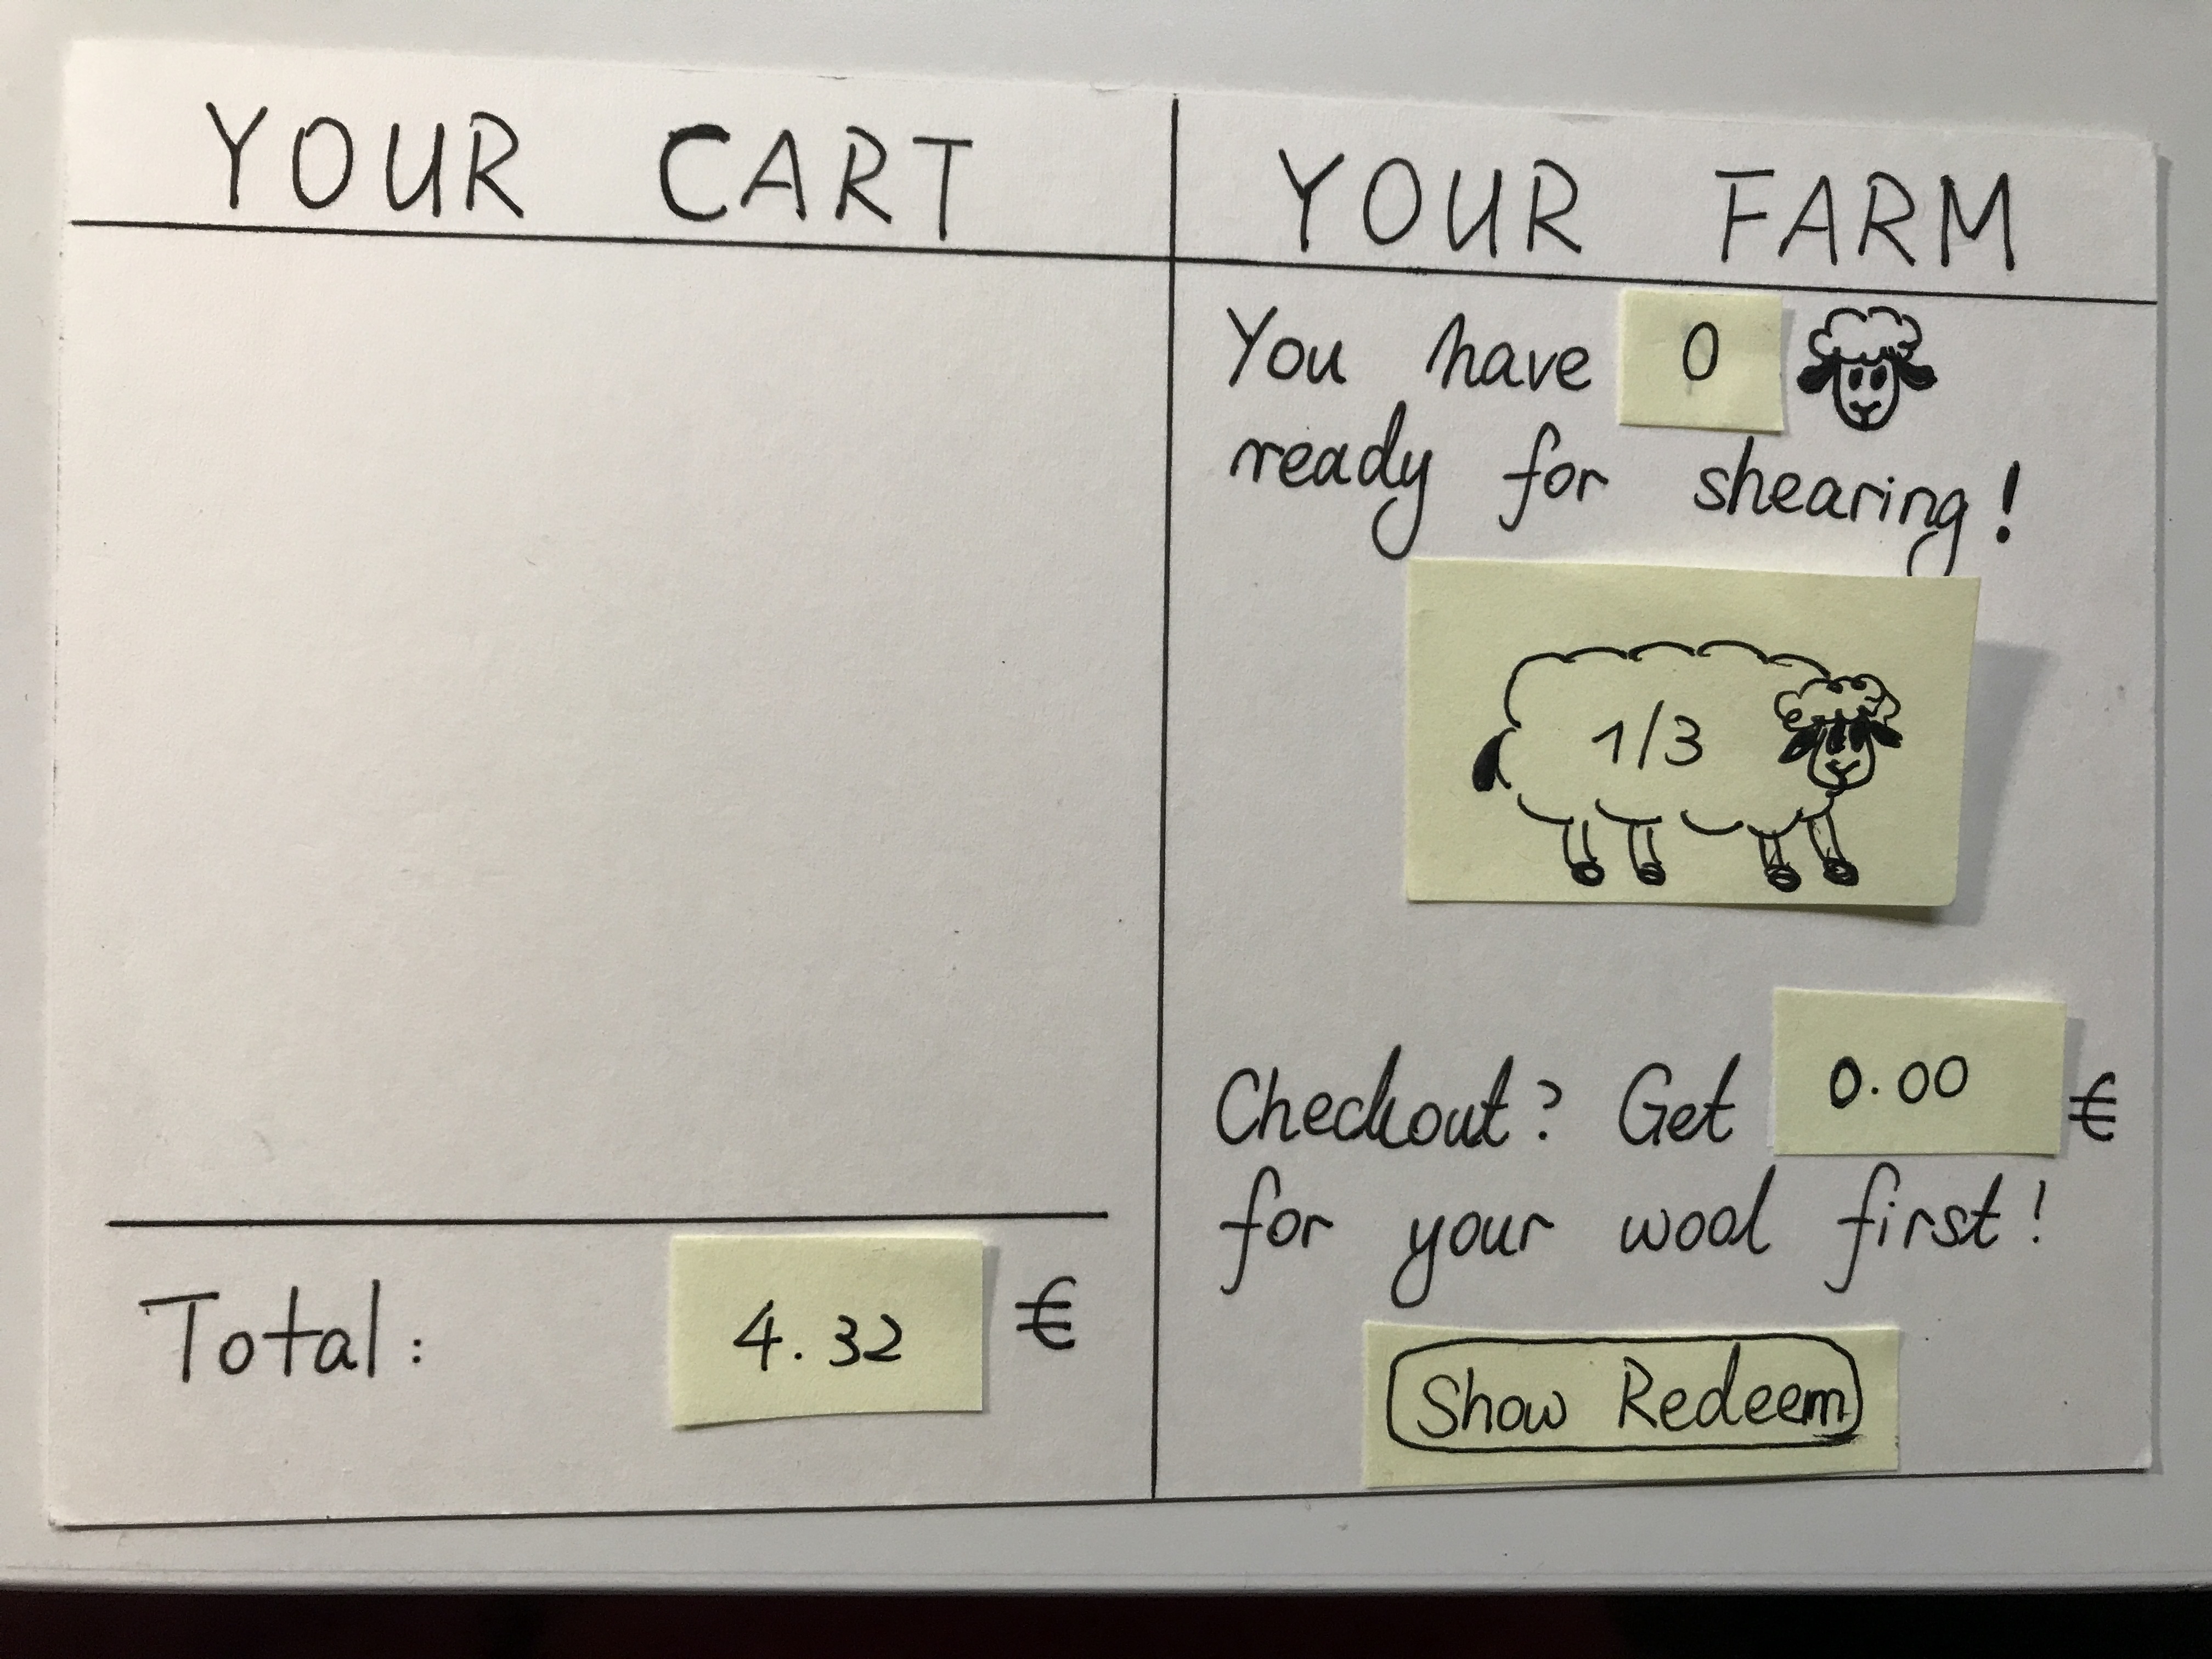 YOUR CART
Total: 4.32 €
YOUR FARM
You have 0
ready for shearing!
1/3
Checkout? Get 0.00 €
for your wool first!
Show Redeem